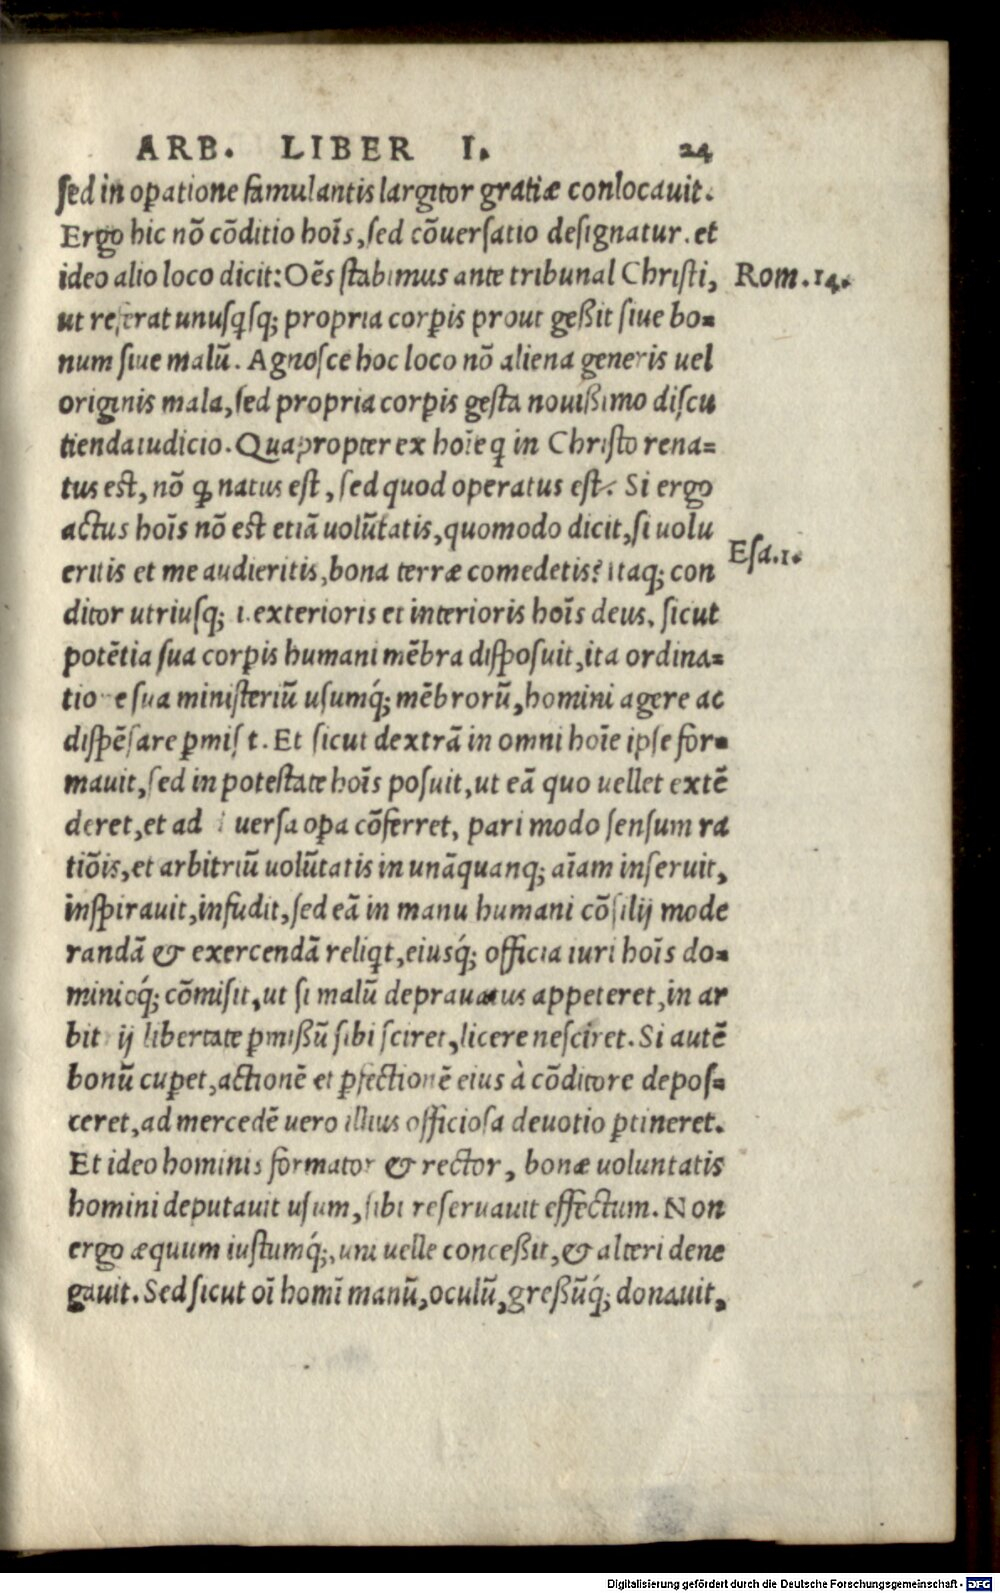 ARB. LIBER I. 24
sed in opatione famulantis largitor gratiæ conlocavit.
Ergo hic nõ cõditio hoĩs, sed cõuersatio designatur. et
ideo alio loco dicit: Oẽs stabimus ante tribunal Christi,
Rom. 14.
ut referat unusqsq; propria corpis prout geßit siue bo=
num siue malũ. Agnosce hoc loco nõ aliena generis uel
originis mala, sed propria corpis gesta nouißimo discu
tienda iudicio. Quapropter ex hoĩe q in Christo rena=
tus est, nõ q natus est, sed quod operatus est. Si ergo
actus hoĩs nõ est etiã uolũtatis, quomodo dicit, si uolu
Esa. 1.
eritis et me audieritis, bona terræ comedetis? itaq; con
ditor utriusq; i. exterioris et interioris hoĩs deus, sicut
potẽtia sua corpis humani mẽbra disposuit, ita ordina=
tio e sua ministeriũ usumq́; mẽbrorũ, homini agere ac
dispẽsare pmis t. Et sicut dextrã in omni hoĩe ipse for=
mauit, sed in potestate hoĩs posuit, ut eã quo uellet extẽ
deret, et ad i uersa opa cõferret, pari modo sensum ra
tiõis, et arbitriũ uolũtatis in unãquanq; aĩam inseruit,
inspirauit, infudit, sed eã in manu humani cõsilij mode
randã & exercendã reliqt, eiusq́; officia iuri hoĩs do=
minioq́; cõmisit, ut si malũ deprauatus appeteret, in ar
bit ij libertate pmißũ sibi sciret, licere nesciret. Si autẽ
bonũ cupet, actionẽ et pfectionẽ eius à cõditore depos=
ceret, ad mercedẽ uero illius officiosa deuotio ptineret.
Et ideo hominis formator & rector, bonæ uoluntatis
homini deputauit usum, sibi reseruauit effectum. Non
ergo æquum iustumq́;, uni uelle conceßit, & alteri dene
gauit. Sed sicut oĩ homĩ manũ, oculũ, greßũq́; donauit,
Digitalisierung gefördert durch die Deutsche Forschungsgemeinschaft - DFG